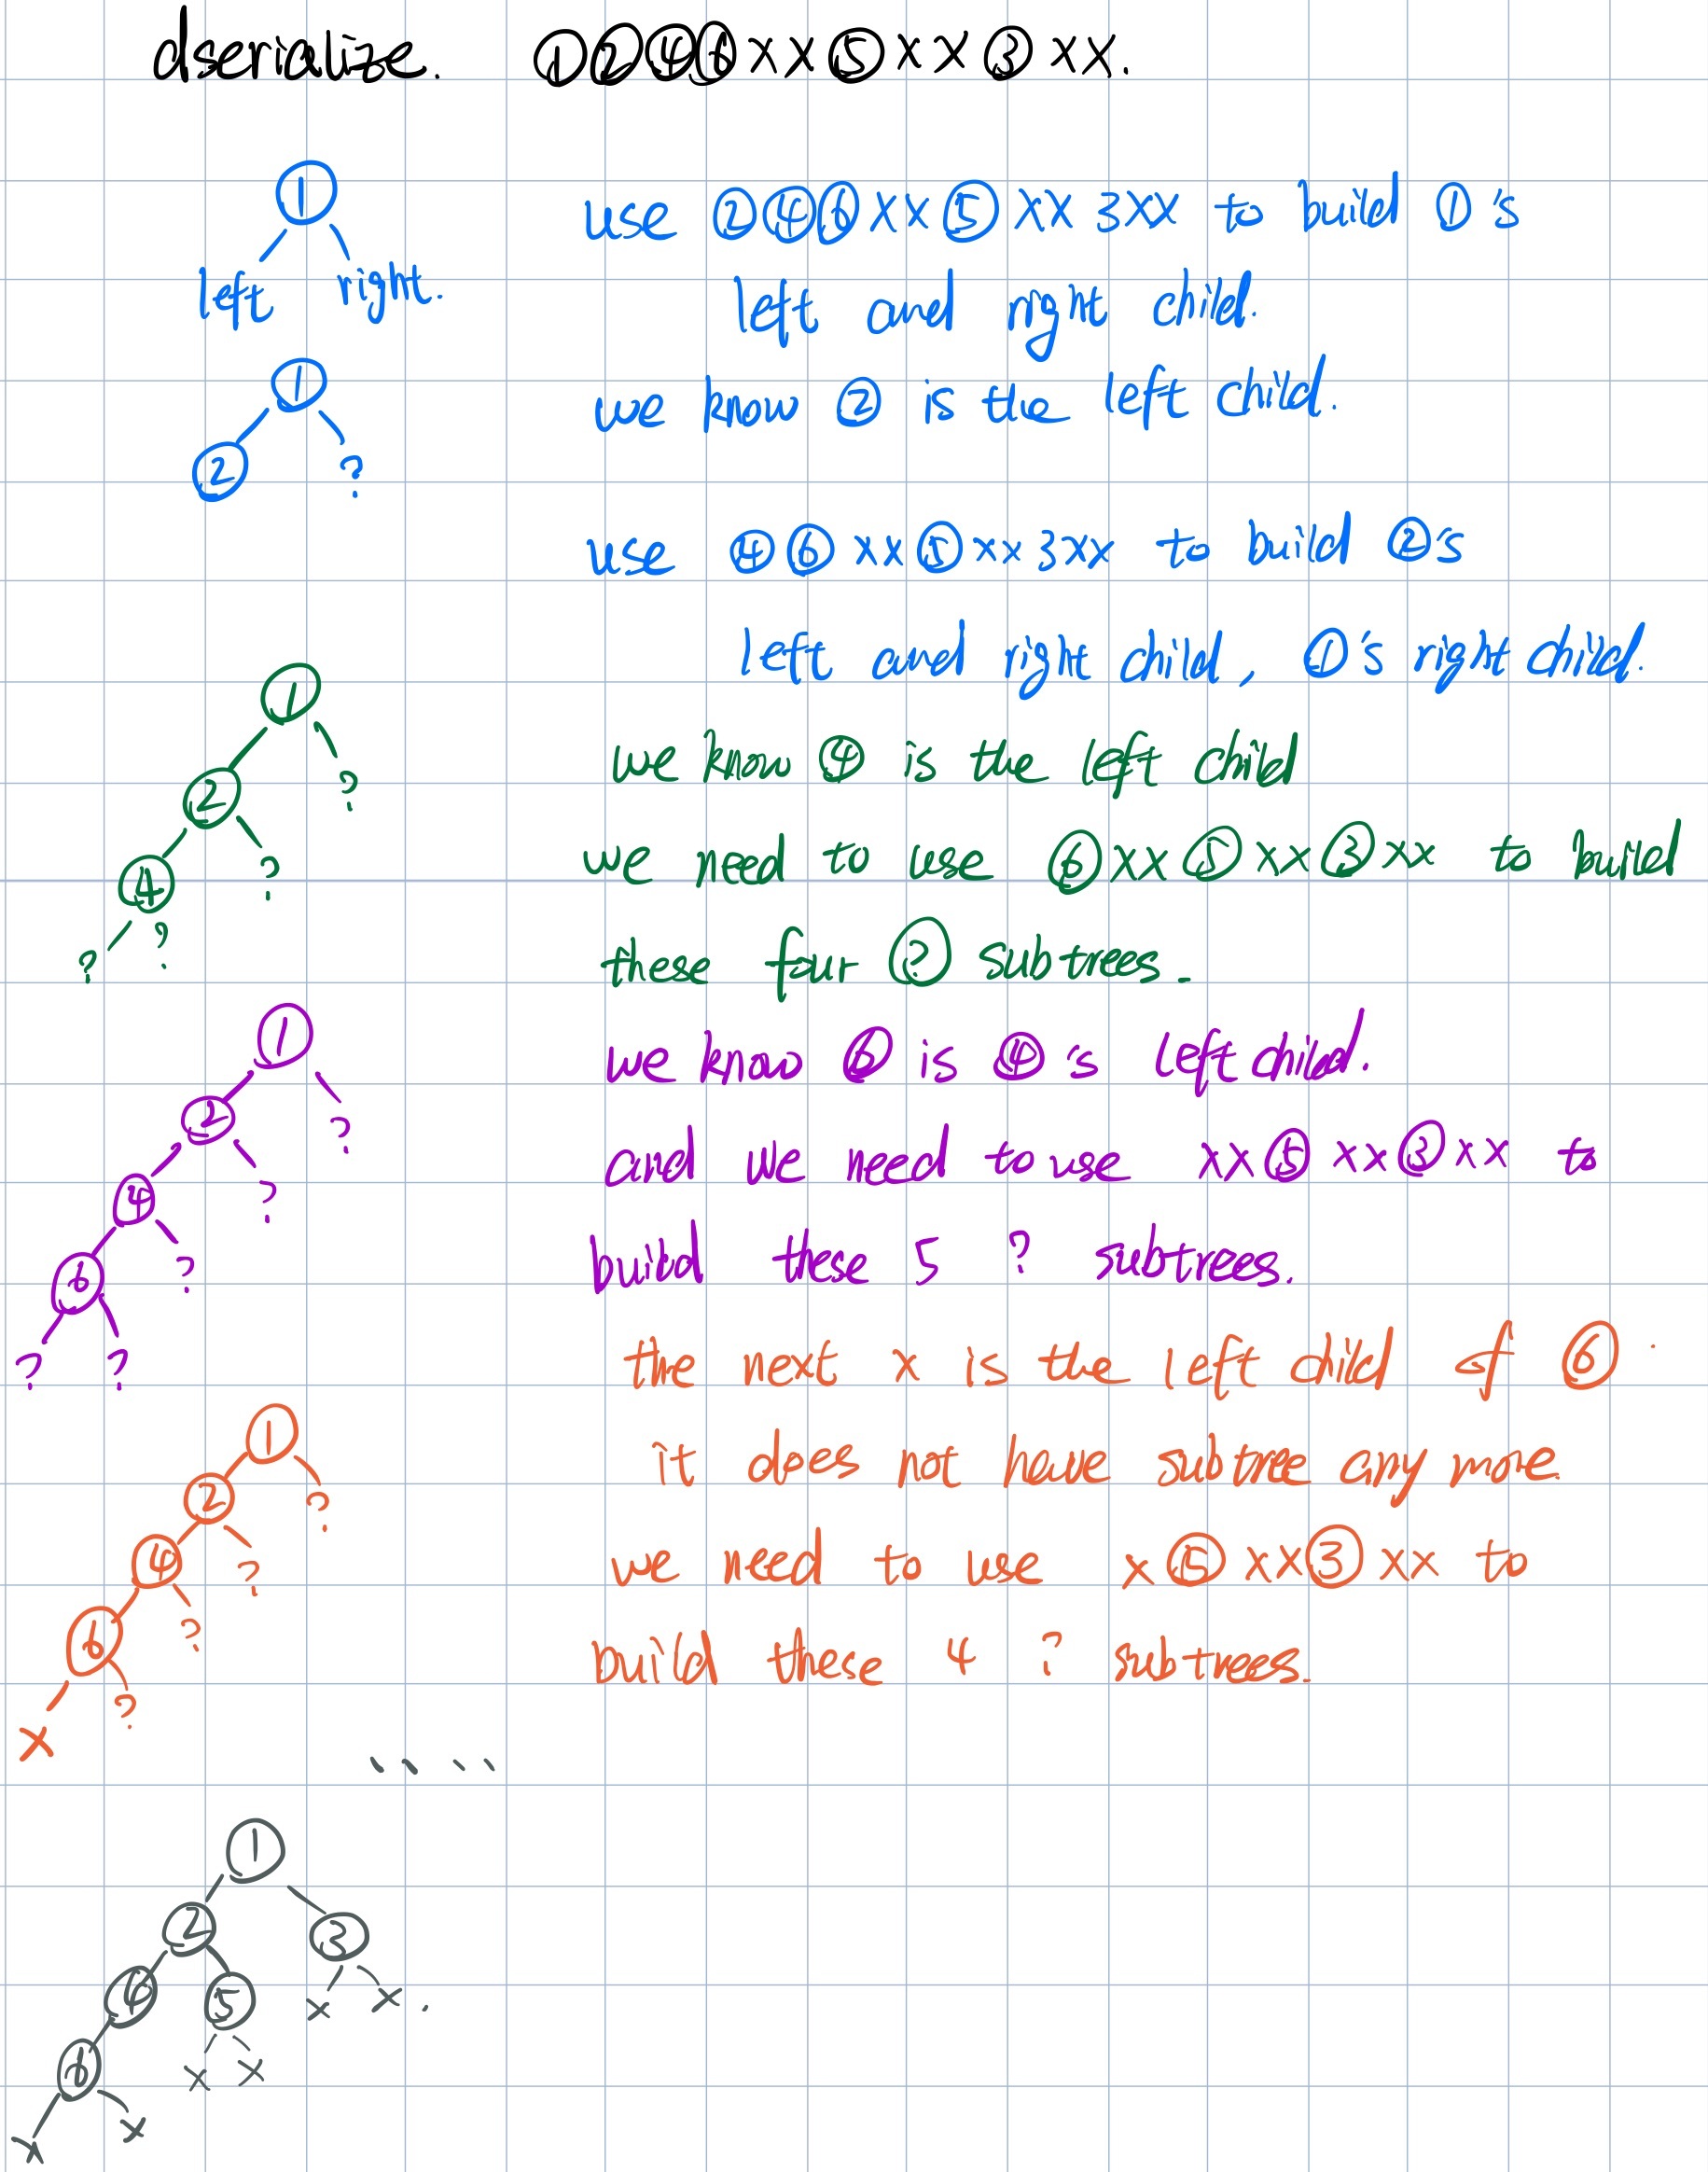 dserialize. ①②④⑥xx⑤xx③xx.
①
left right.
use ②④⑥xx⑤xx3xx to build ①'s
left and right child.
①
② ?
we know ② is the left child.
use ④⑥xx⑤xx3xx to build ②'s
left and right child, ①'s right child.
①
② ?
④ ?
? ?
we know ④ is the left child
we need to use ⑥xx⑤xx③xx to build
these four ? subtrees.
①
② ?
④ ?
⑥ ?
? ?
we know ⑥ is ④'s left child.
and we need to use xx⑤xx③xx to
build these 5 ? subtrees.
①
② ?
④ ?
⑥ ?
x ?
the next x is the left child of ⑥.
it does not have subtree any more
we need to use x⑤xx③xx to
build these 4 ? subtrees.
....
①
② ③
④ ⑤ x x.
⑥ x x
x x